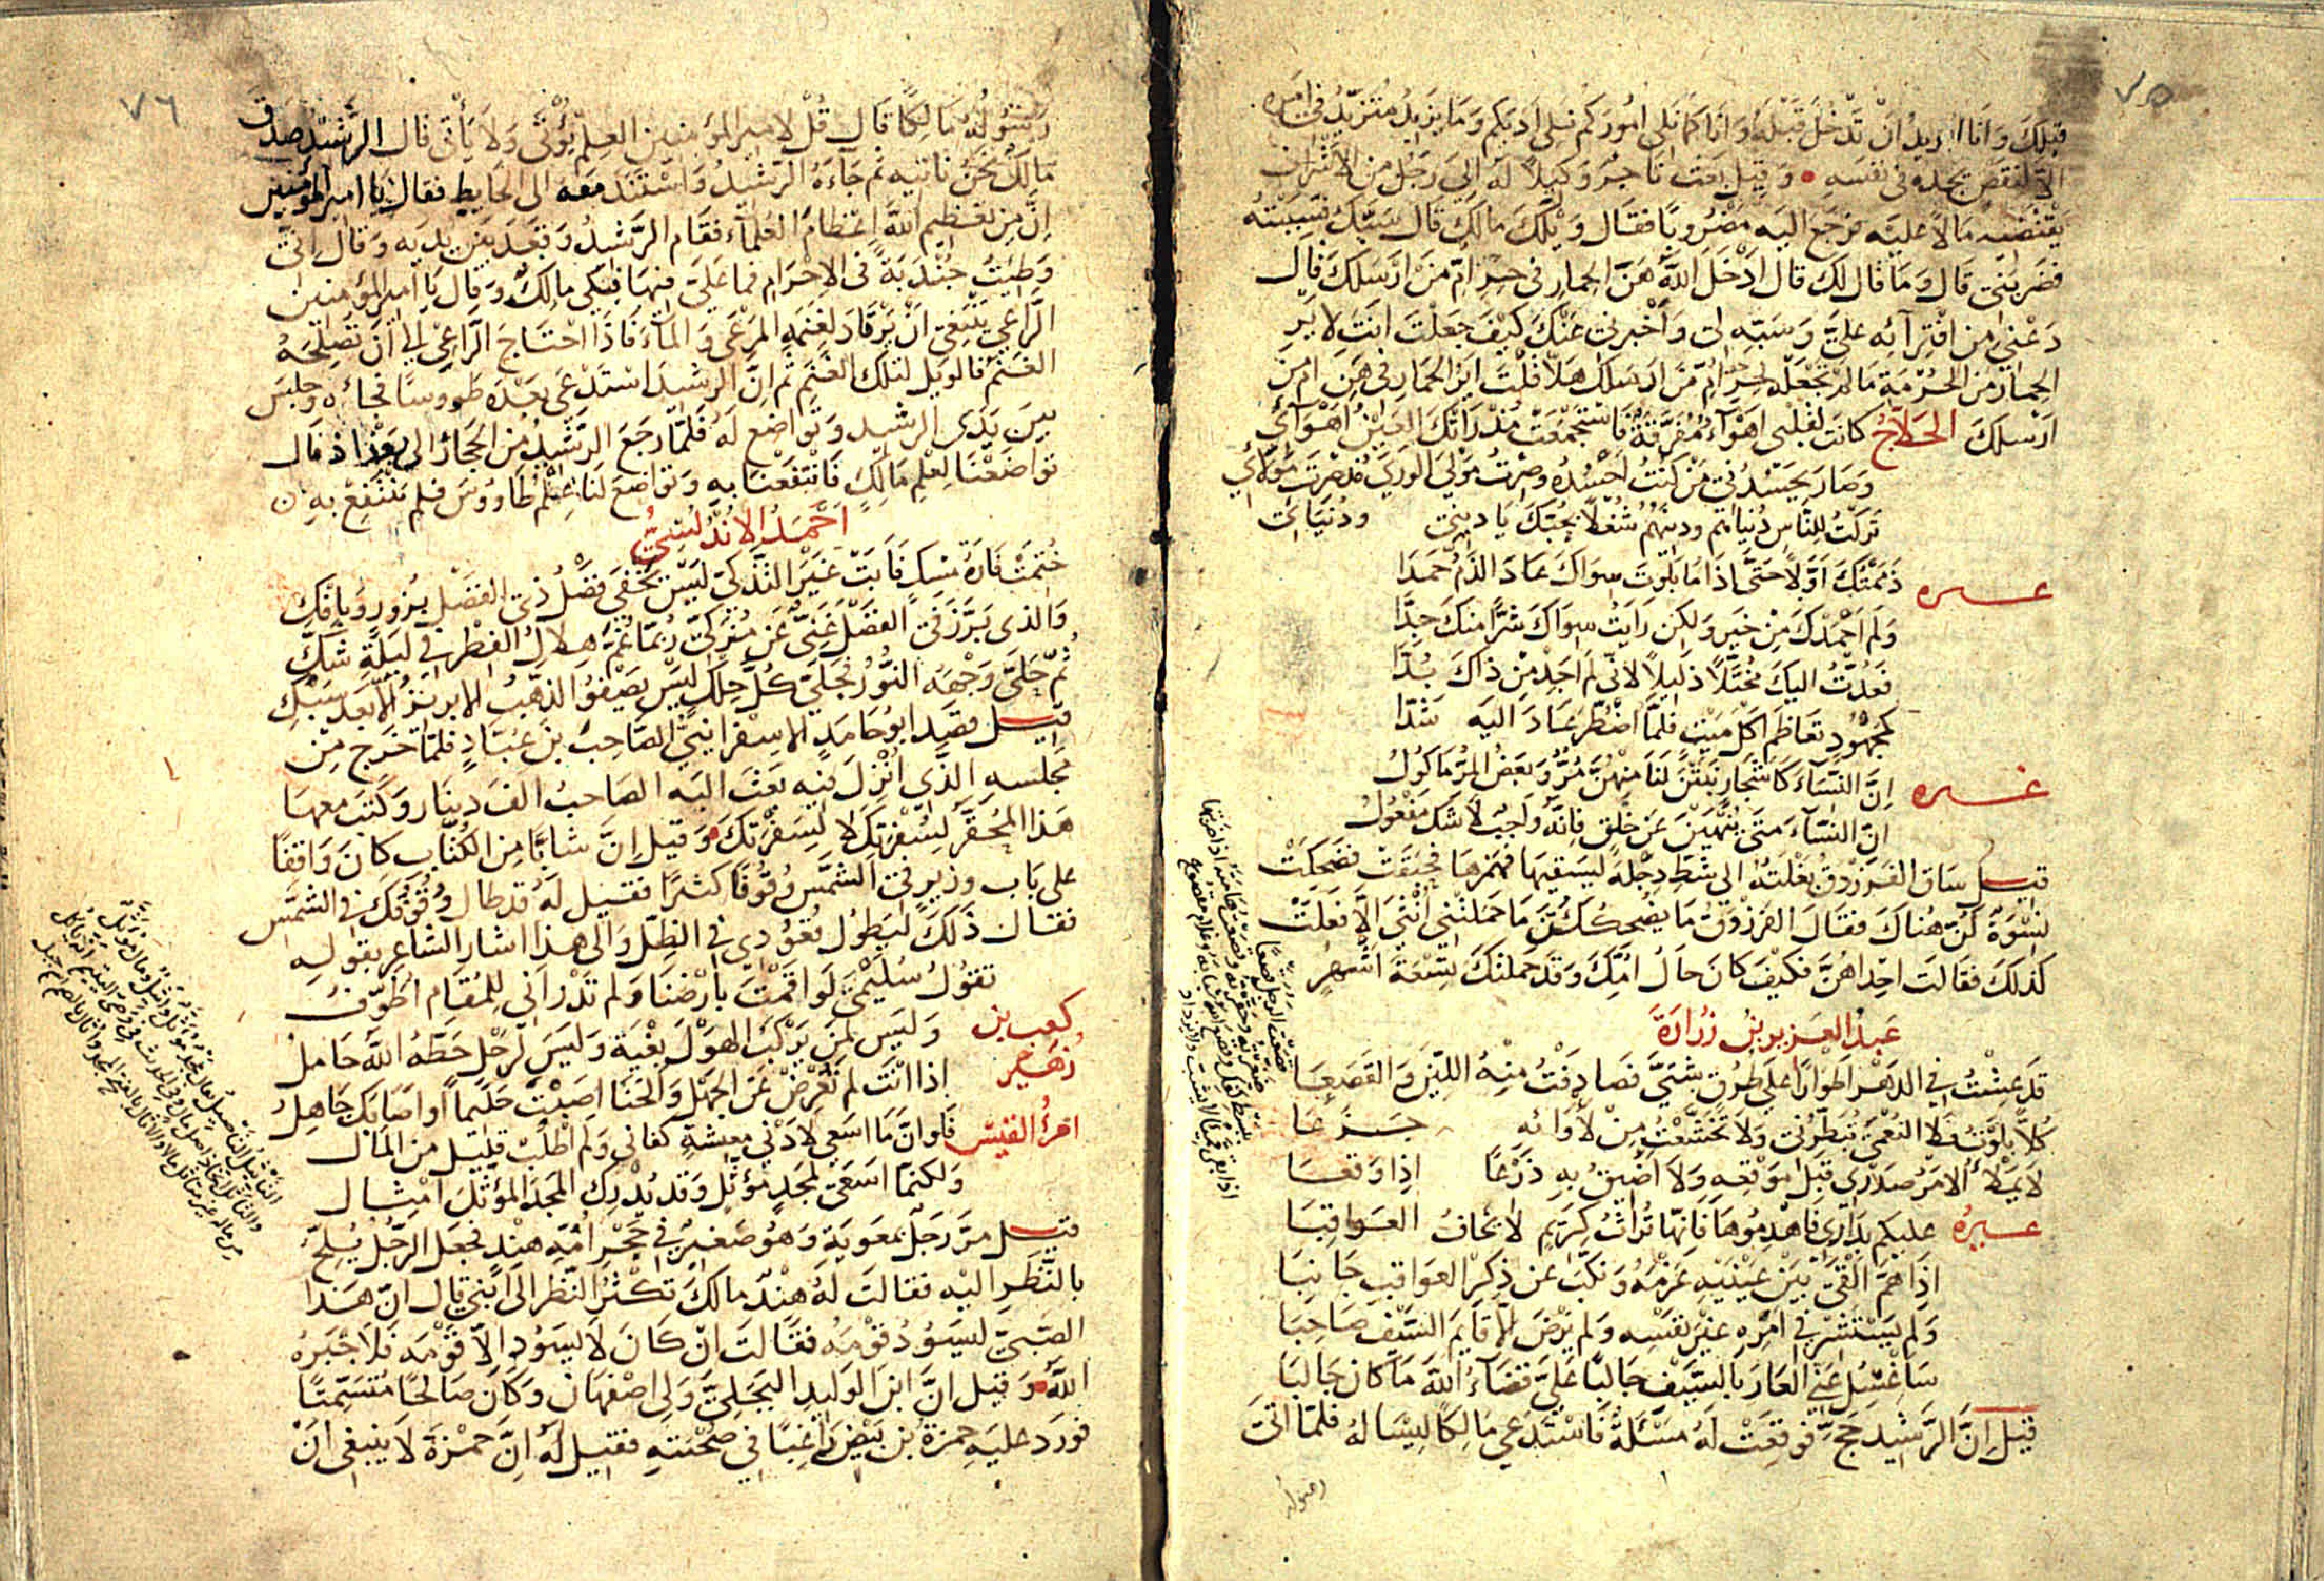 ٧٥
قبلك وانا اريد ان تدخل قبله وانا كما نلي اموركم نلي ادبكم وما يزيد متزيد في امره
الا لنقص يجده في نفسه • وقيل بعث تاجر وكيلا له الى رجل من الاشراف
يقتضيه مالا عليه فرجع اليه مضروبا فقال ويلك مالك قال سبك فسببته
فضربني قال وما قال لك قال ادخل الله هن الحمار في حر ام من ارسلك قال
دعني من افترائه علي وسبه لي واخبرني عنك كيف جعلت انت لاير
الحمار من الحرمة ما لم تجعله لحر ام من ارسلك هلا قلت اير الحمار في هن ام من
ارسلك الحلاج كانت لقلبي اهواء مفرقة فاستجمعت مذ راتك العين اهوائي
وصار يحسدني من كنت احسده وصرت مولى الورى مذ صرت مولائي
تركت للناس دنياهم ودينهم شغلا بحبك يا ديني ودنيائي
غيره ذممتك اولا حتى اذا ما بلوت سواك عاد الذم حمدا
ولم احمدك من خير ولكن رايت سواك شرا منك جدا
فعدت اليك مختلا ذليلا لاني لم اجد من ذاك بدا
كمجهود تعاظم اكل ميت فلما اضطر عاد اليه شدا
غيره ان النساء كاشجار نبتن لنا منهن مر وبعض المر ماكول
ان النساء متى ينهين عن خلق فانه واجب لا شك مفعول
قيل ساق الفرزدق بغلته الى شط دجلة ليسقيها فهمزها فحبقت فضحكت
نسوة كن هناك فقال الفرزدق ما يضحككن ما حملتني انثى الا فعلت
كذلك فقالت احداهن فكيف كان حال امك وقد حملتك تسعة اشهر
عبد العزيز بن زرارة
قد عشت في الدهر اطوارا على طرق شتى فصادفت منه اللين والفصعا
كلا بلوت فلا النعمى تبطرني ولا تخشعت من لاوائه جزعا
لا يملا الامر صدري قبل موقعه ولا اضيق به ذرعا اذا وقعا
غيره عليكم بداري فاهدموها فانها تراث كريم لا يخاف العواقبا
اذا هم القى بين عينيه عزمه ونكب عن ذكر العواقب جانبا
ولم يستشر في امره غير نفسه ولم يرض الا قايم السيف صاحبا
ساغسل عني العار بالسيف جالبا علي قضاء الله ما كان جالبا
قيل ان الرشيد حج فوقعت له مسئلة فاستدعى مالكا ليساله فلما اتى
رسوله
٧٦
رسوله مالكا قال قل لامير المؤمنين العلم يؤتى ولا يأتي قال الرشيد صدق
مالك نحن ناتيه ثم جاءه الرشيد واستند معه الى الحايط فقال يا امير المؤمنين
ان من تعظيم الله اعظام العلماء فقام الرشيد وقعد بين يديه وقال اني
وطئت جندبة في الاحرام فما علي فيها فبكى مالك وقال يا امير المؤمنين
الراعي ينبغي ان يرتاد لغنمه المرعى والماء فاذا احتاج الراعي الى ان تصلحه
الغنم فالويل لتلك الغنم ثم ان الرشيد استدعى بعده طووسا فجاءه وجلس
بين يدي الرشيد وتواضع له فلما رجع الرشيد من الحجاز الى بغداد قال
تواضعنا لعلم مالك فانتفعنا به وتواضع لنا علم طاووس فلم ننتفع به
احمد الاندلسي
ختمت فارة مسك فابت غير التذكي ليس يخفى فضل ذي الفضل بزور وبافك
والذي برز في الفضل غني عن مزكي ربما غم هلال الفطر في ليلة شك
ثم جلى وجهه النور فجلى كل حلك ليس يصفو الذهب الابريز الا بعد سبك
قيل قصد ابو حامد الاسفرانيني الصاحب بن عباد فلما خرج من
مجلسه الذي انزل فيه بعث اليه الصاحب الف دينار وكتب معها
هذا المحقر لسفرتك لا لسفرتك • وقيل ان شابا من الكتاب كان واقفا
على باب وزير في الشمس وقوفا كثيرا فقيل له قد طال وقوفك في الشمس
فقال ذلك ليطول قعودي في الظل والى هذا اشار الشاعر بقوله
تقول سليمى لو اقمت بارضنا ولم تدر اني للمقام اطوف
كعب بن زهير وليس لمن يركب الهول بغية وليس لرحل حطه الله حامل
اذا انت لم تعرض عن الجهل والخنا اصبت حليما او اصابك جاهل
امرؤ القيس فلو ان ما اسعى لادنى معيشة كفاني ولم اطلب قليل من المال
ولكنما اسعى لمجد مؤثل وقد يدرك المجد المؤثل امثالي
قيل مر رجل بمعوية وهو صغير في حجر امه هند فجعل الرجل يلح
بالنظر اليه فقالت له هند مالك تكثر النظر الى ابني قال ان هذا
الصبي ليسود قومه فقالت ان كان لا يسود الا قومه فلا جبره
الله • وقيل ان ابن الوليد البجلي ولي اصفهان وكان صالحا متسمتا
فورد عليه حمزة بن بيض راغبا في صحبته فقيل له ان حمزة لا ينبغي ان